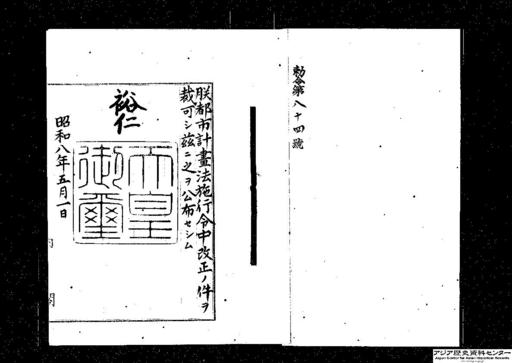 勅令第八十四號
朕都市計畫法施行令中改正ノ件ヲ
裁可シ茲ニ之ヲ公布セシム
裕仁
天皇
御璽
昭和八年五月一日
内
閣
アジア歴史資料センター
Japan Center for Asian Historical Records